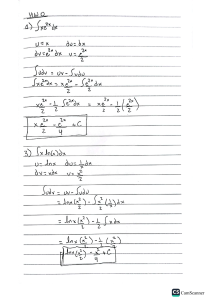 HW 2
1) ∫xe^2x dx
u=x du=dx
dv=e^2x dx v=e^2x/2
∫udv = uv-∫vdu
∫xe^2x dx = xe^2x/2 - ∫e^2x/2 dx
xe^2x/2 - 1/2 ∫e^2x dx = xe^2x/2 - 1/2(e^2x/2)
xe^2x/2 - e^2x/4 + C
3) ∫xln(x)dx
u=lnx du=1/x dx
dv=xdx v=x²/2
∫udv = uv-∫vdu
= lnx(x²/2) - ∫x²/2(1/x)dx
= lnx(x²/2) - 1/2 ∫xdx
= lnx(x²/2) - 1/2(x²/2)
lnx(x²/2) - x²/4 + C
CS CamScanner